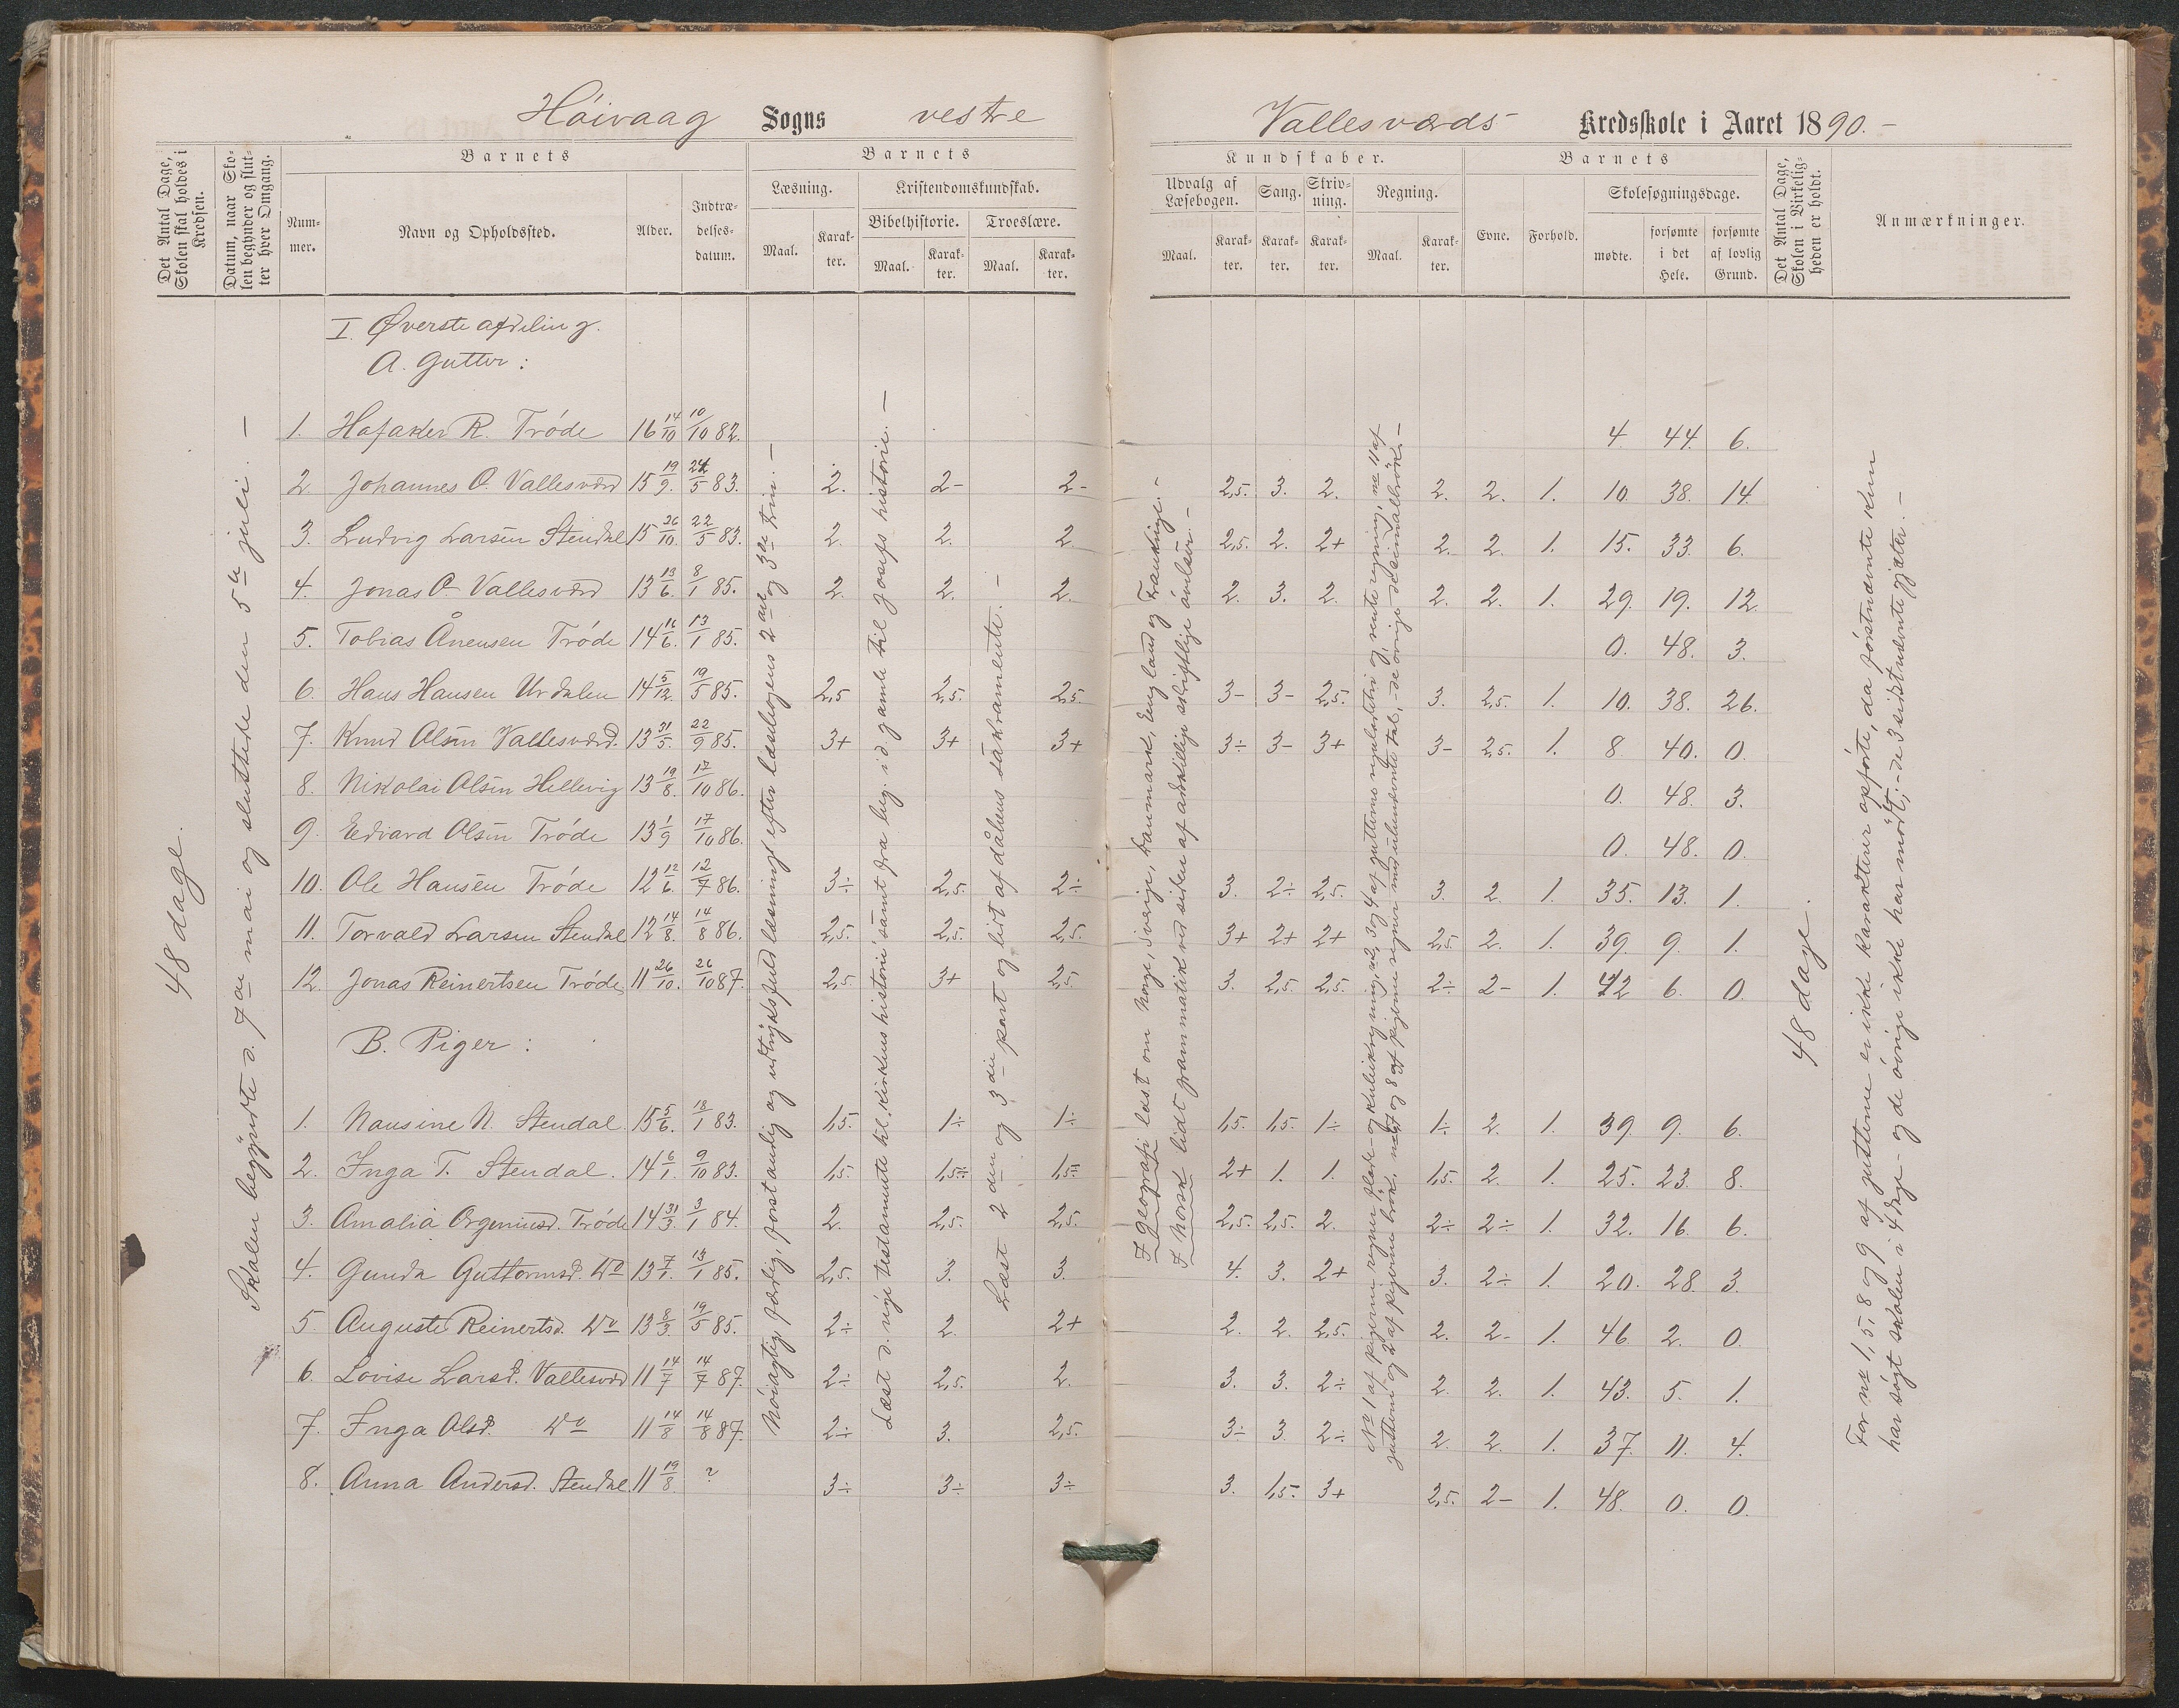 Høivaag Sogns vestre Vallesværds Kredsskole i Aaret 1890.-
Det Antal Dage, Skolen skal holdes i Kredsen.
Datum, naar Skolen begynder og slutter hver Omgang.
Barnets
Nummer.
Navn og Opholdssted.
Alder.
Indtrædelsesdatum.
Barnets
Læsning.
Maal.
Karakter.
Kristendomskundskab.
Bibelhistorie.
Maal.
Karakter.
Troeslære.
Maal.
Karakter.
Kundskaber.
Udvalg af Læsebogen.
Maal.
Karakter.
Sang.
Karakter.
Skrivning.
Karakter.
Regning.
Maal.
Karakter.
Barnets
Evne.
Forhold.
Skolesøgningsdage.
mødte.
forsømte i det Hele.
forsømte af lovlig Grund.
Det Antal Dage, Skolen i Virkeligheden er holdt.
Anmærkninger.
48 dage.
Skolen begyndte d. 7de mai og sluttede den 5te juli. -
I. Øverste afdeling.
A. Gutter:
1. Hafaker R. Trøde 16 14/10 10/10 82. 4. 44. 6.
2. Johannes O. Vallesværd 15 19/9. 24/5 83. 2. 2- 2- 2,5. 3. 2. 2. 2. 1. 10. 38. 14.
3. Ludvig Larsen Stendal 15 26/10. 22/5 83. 2. 2. 2. 2,5. 2. 2+ 2. 2. 1. 15. 33. 6.
4. Jonas O. Vallesværd 13 13/6. 8/1 85. 2. 2. 2. 2. 3. 2. 2. 2. 1. 29. 19. 12.
5. Tobias Ånensen Trøde 14 11/6. 13/1 85. 0. 48. 3.
6. Hans Hansen Urdalen 14 5/12. 19/5 85. 2,5 2,5. 2,5. 3- 3- 2,5. 3. 2,5. 1. 10. 38. 26.
7. Knud Olsen Vallesværd. 13 31/5. 22/9 85. 3+ 3+ 3+ 3÷ 3- 3+ 3- 2,5. 1. 8 40. 0.
8. Nikolai Olsen Hellevig 13 19/8. 17/10 86. 0. 48. 3.
9. Edvard Olsen Trøde 13 1/9 17/10 86. 0. 48. 0.
10. Ole Hansen Trøde 12 12/6. 12/7 86. 3÷ 2,5. 2÷ 3. 2÷ 2,5. 3. 2. 1. 35. 13. 1.
11. Torvald Larsen Stendal 12 14/8. 14/8 86. 2,5. 2,5. 2,5. 3+ 2+ 2+ 2,5 2. 1. 39. 9. 1.
12. Jonas Reinertsen Trøde 11 26/10. 26/10 87. 2,5. 3+ 2,5. 3. 2,5. 2,5. 2÷ 2- 1. 42 6. 0.
B. Piger:
1. Nausine N. Stendal. 15 5/6. 18/1 83. 1,5. 1÷ 1÷ 1,5. 1,5. 1÷ 1÷ 2. 1. 39. 9. 6.
2. Inga T. Stendal. 14 6/1. 9/10 83. 1,5. 1,5÷ 1,5÷ 2+ 1. 1. 1,5. 2. 1. 25. 23. 8.
3. Amalia Orgeniusd. Trøde 14 31/3. 3/1 84. 2. 2,5. 2,5. 2,5. 2,5. 2. 2÷ 2÷ 1. 32. 16. 6.
4. Gunda Guttormsd. Do 13 7/1. 13/1 85. 2,5. 3. 3. 4. 3. 2+ 3. 2÷ 1. 20. 28. 3.
5. Auguste Reinertsd. Do 13 8/3. 19/5 85. 2÷ 2. 2+ 2. 2. 2,5. 2. 2- 1. 46. 2. 0.
6. Lovise Larsd. Vallesværd 11 14/7 14/7 87. 2÷ 2,5. 2. 3. 3. 2÷ 2. 2. 1. 43. 5. 1.
7. Inga Olsd. Do 11 14/8 14/8 87. 2÷ 3. 2,5. 3÷ 3. 2÷ 2. 2. 1. 37. 11. 4.
8. Anna Andersd. Stendal. 11 19/8. ? 3÷ 3÷ 3÷ 3. 1,5. 3+ 2,5. 2- 1. 48. 0. 0.
Nøiagtig, færdig, forstandig og udtryksfuld læsning efter læsebogens 2det og 3de trin. -
Læst d. nye testamente til kirkens historie samt fra beg. i d. gamle til Josefs historie. -
Læst 2den og 3die part og lidt af dåbens sakramente. -
I geografi læst om Norge, Sverige, Danmark, England og Frankrige. -
I Norsk lidt grammatik ved siden af adskillige skriftlige øvelser. -
No 1 af pigerne regner flade- og kubikregning, no 2, 3 og 4 af gutterne reguladetri og rente regning, no 11 af
gutterne og 2 af pigerne brøk, no 7 og 8 af pigerne regner med ubenævnte tal, - de øvrige decimalbrøk. -
48 dage.
For no 1, 5, 8 og 9 af gutterne er ikke karakterer opførte, da førstnævnte kun
har søgt skolen i 4 dage - og de øvrige ikke har mødt; - de 3 sidstnævnte gjæter. -